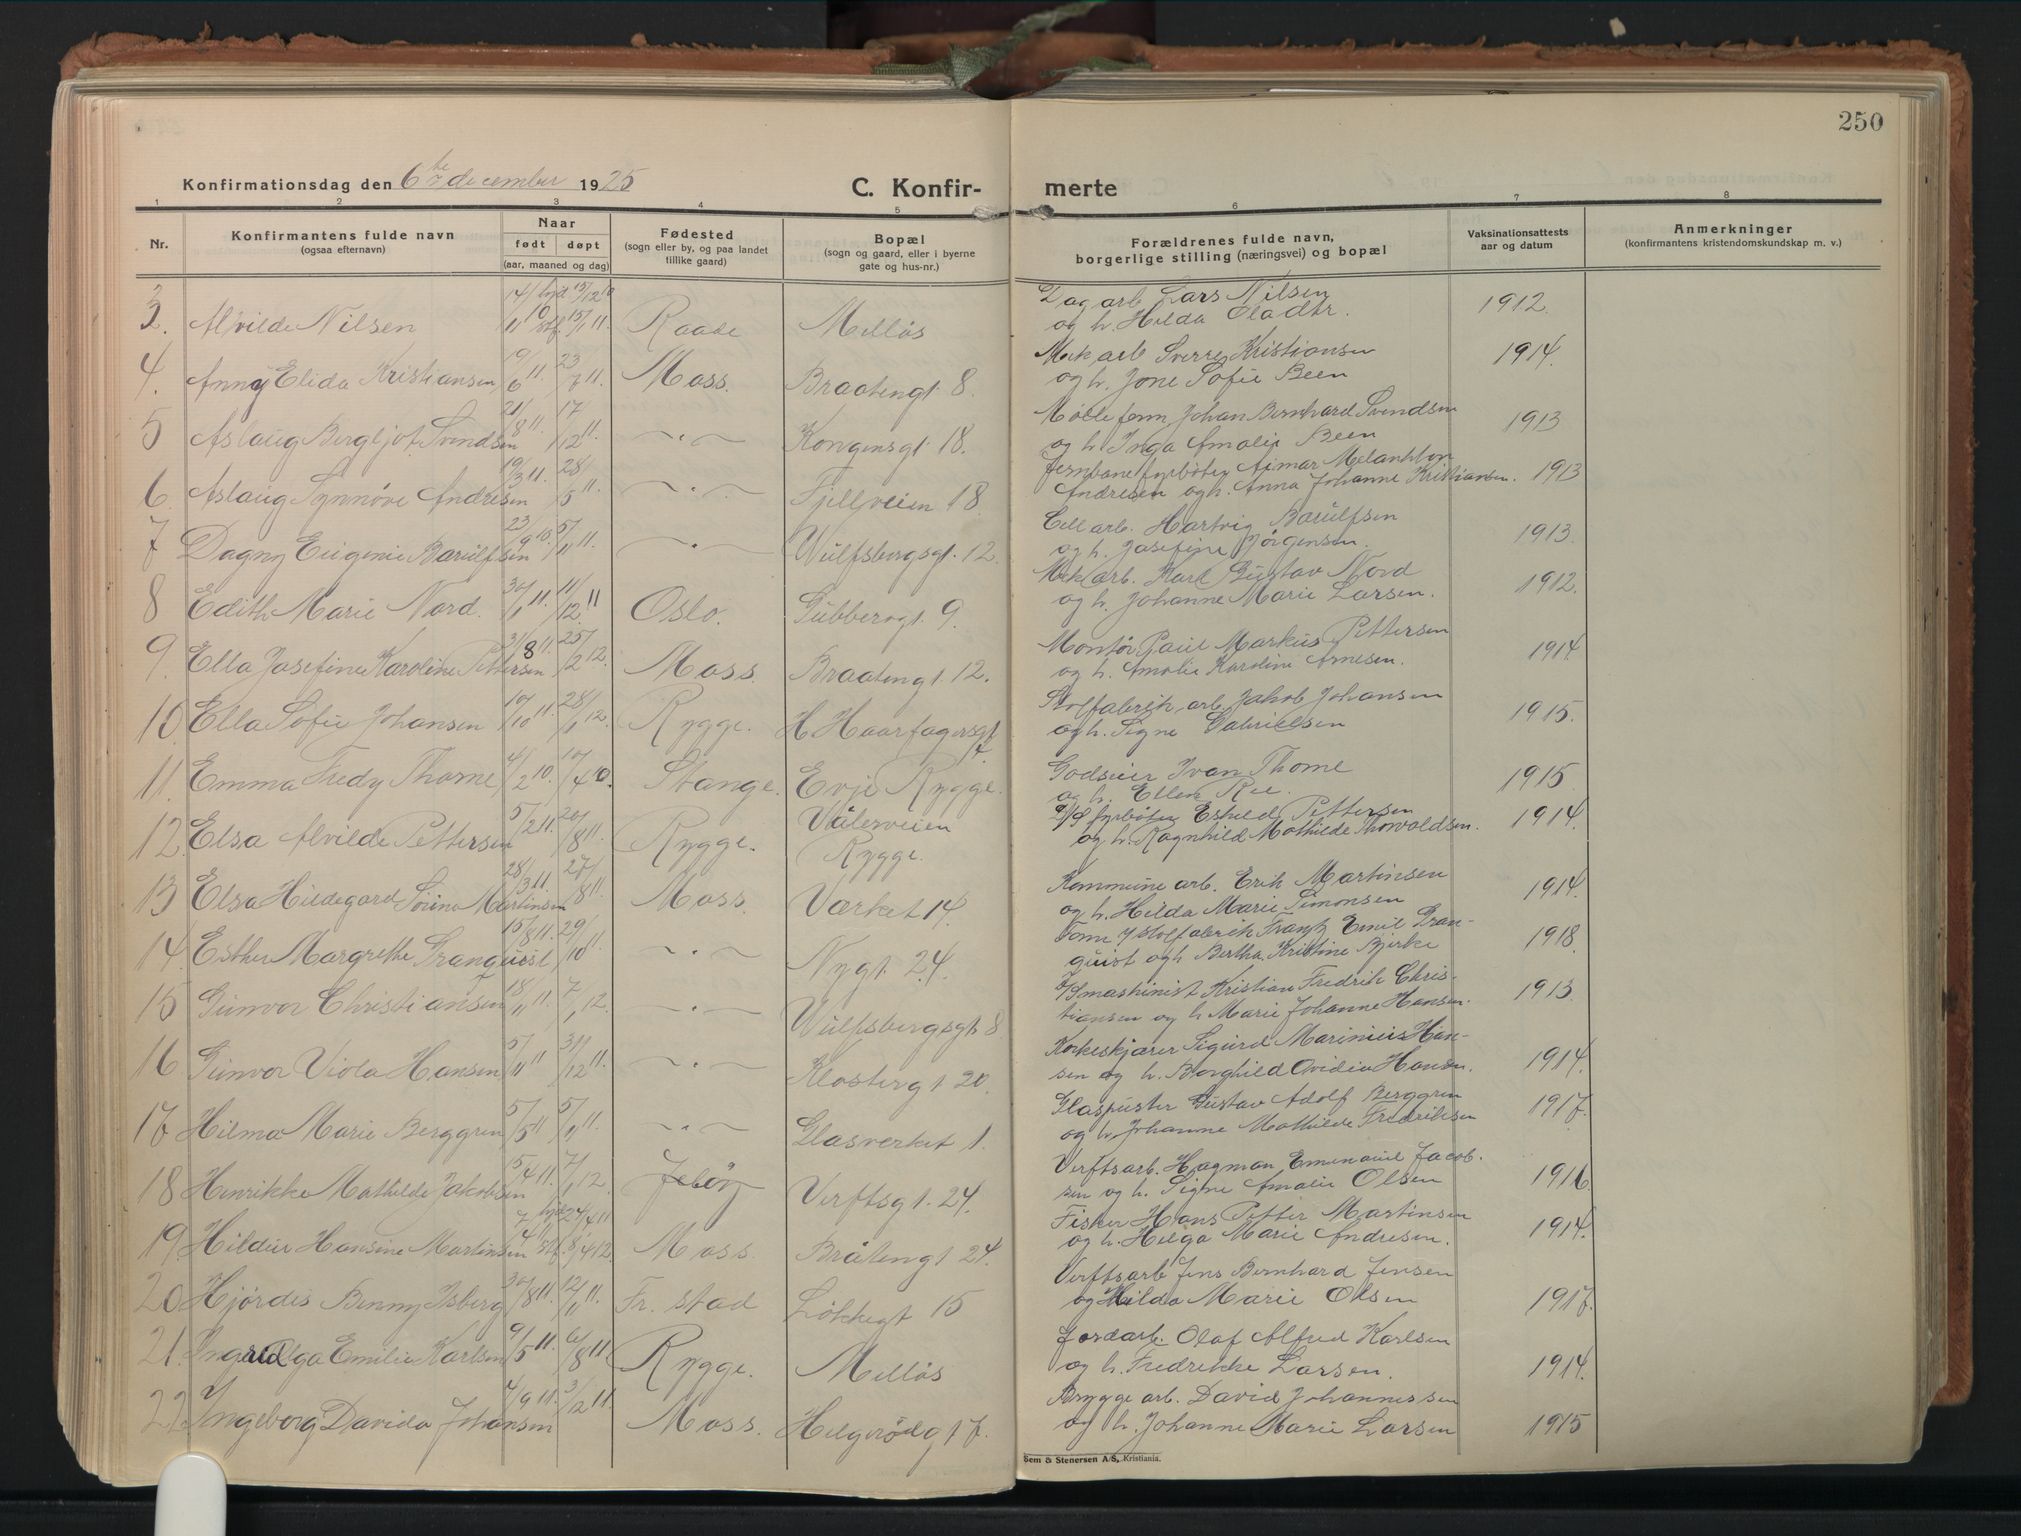 250
Konfirmationsdag den 6te december 1925
C. Konfir- merte
1 2 3 4 5 6 7 8
Nr.
Konfirmantens fulde navn
(ogsaa efternavn)
Naar
født døpt
(aar, maaned og dag)
Fødested
(sogn eller by, og paa landet
tillike gaard)
Bopæl
(sogn og gaard, eller i byerne
gate og hus-nr.)
Forældrenes fulde navn,
borgerlige stilling (næringsvei) og bopæl
Vaksinationsattests
aar og datum
Anmerkninger
(konfirmantens kristendomskundskap m. v.)
3. Alvilde Nilsen 14/10 hjd 15/12 10 stf. 15/1 11. Raade Melløs Dagarb. Lars Nilsen
og h. Hilda Oladtr. 1912.
4. Anny Elida Kristiansen 9/6 11. 23/7 11. Moss. Braatengt. 8. Mek arb. Sverre Kristiansen
og h. Jone Sofie Been 1914.
5 Aslaug Bergljot Svendsen 21/8 11. 17/12 11. —"— Kongensgt. 18. Mølle form. Johan Bernhard Svendsen
og h. Inga Amalie Been 1913
6. Aslaug Synnøve Andresen 19/3 11. 28/5 11. —"— Fjellveien 18 Jernbane fyrbøter Ajmar Melankton
Andresen og h. Anna Johanne Kristiansen. 1913
7 Dagny Eugenie Barulfsen 23/9 10. 5/11 11. —"— Wulfsbergsgt. 12 Cell arb. Hartvig Barulfsen
og h. Josefine Jørgensen. 1913.
8 Edith Marie Nord. 30/1 11. 11/12 11 Oslo. Gubberogt. 9. Mek arb. Karl Gustav Nord
og h. Johanne Marie Larsen. 1912.
9. Ella Josefine Karoline Pettersen 31/8 11. 25/2 12. Moss. Braatengt. 12. Montør Paul Markus Pettersen
og h. Amalie Karoline Arnesen. 1914
10 Ella Sofie Johansen 10/10 11. 28/1 12. Rygge. H Haarfagersgt 7. Stolfabrik arb. Jakob Johansen
og h. Signe Gabrielsen 1915.
11. Emma Fredy Thorne 4/2 10. 10/4 10. Stange. Evje Rygge. Godseier Ivan Thorne
og h. Ellen Ree. 1915.
12. Elsa Alvilde Pettersen 5/2 11. 20/8 11. Rygge. Våleveien
Rygge. D/S fyrbøter Eskild Pettersen
og h. Ragnhild Mathilde Thorvaldsen. 1914.
13 Elsa Hildegard Sørine Martinsen 28/3 11. 27/8 11. Moss. Værket 14. Kommune arb. Erik Martinsen
og h. Hilda Marie Simonsen 1914.
14. Esther Margrethe Granquist 15/8 11. 29/10 11. —"— Nygt. 24. Form. / Stolfabrik Frantz Emil Gran-
quist og h. Bertha Kristine Bjerke 1918.
15 Gunvor Christiansen 18/11 11. 7/1 12. —"— Wulfsbergsgt. 8 D/S maskinist Kristian Fredrik Chris-
tiansen og h. Marie Johanne Hansen. 1913.
16 Gunvor Viola Hansen 5/11 11 31/12 11. —"— Klostergt 20. Korkeskjærer Sigurd Marinius Han-
sen og h. Borghild Ovidia Hansen. 1914.
17 Hilma Marie Berggren 5/5 11 5/11 11. —"— Glasverket 1. Glaspuster Gustav Adolf Berggren
og h. Johanne Mathilde Fredriksen 1917.
18 Henrikke Mathilde Jakobsen 5/4 11. 7/1 12. Jeløy Verftsgt. 24. Verftsarb. Hagman Emanuel Jacob-
sen og h. Signe Amalie Olsen 1916.
19. Hildur Hansine Martinsen 7/4 11 hjd 24/4 11 stf. 8/4 12 Moss. Bråtengt 24. Fisker Hans Petter Martinsen
og h. Helga Marie Andresen. 1914.
20 Hjørdis Benny Isberg 30/8 11. 12/11 11. Fr. stad Løkkegt 15 Verftsarb Jens Bernhard Jensen
og Hilda Marie Olsen 1917.
21. Ingrid Olga Emilie Karlsen 9/5 11. 6/8 11 Rygge. Melløs Jordarb. Olaf Alfred Karlsen
og h. Fredrikke Larsen. 1914.
22. Ingeborg Davida Johansen 4/9 11. 3/12 11. Moss. Helgerødgt 7. Brygge arb. David Johannessen
og h. Johanne Marie Larsen 1915
Sem & Stenersen A/S, Kristiania.